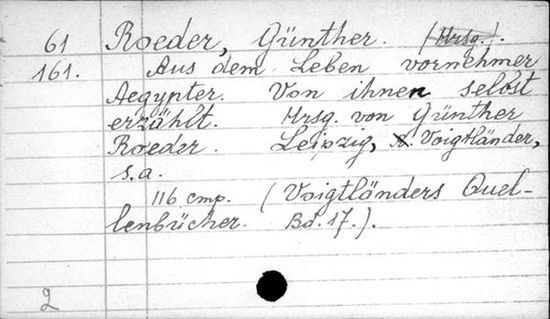 61 Roeder, Günther. (Hrsg.).
161. Aus dem Leben vornehmer
Aegypter. Von ihnen selbst
erzählt. Hrsg. von Günther
Roeder. Leipzig, R. Voigtländer,
s.a.
116 cmp. (Voigtländers Quel-
lenbücher. Bd. 17.).
2